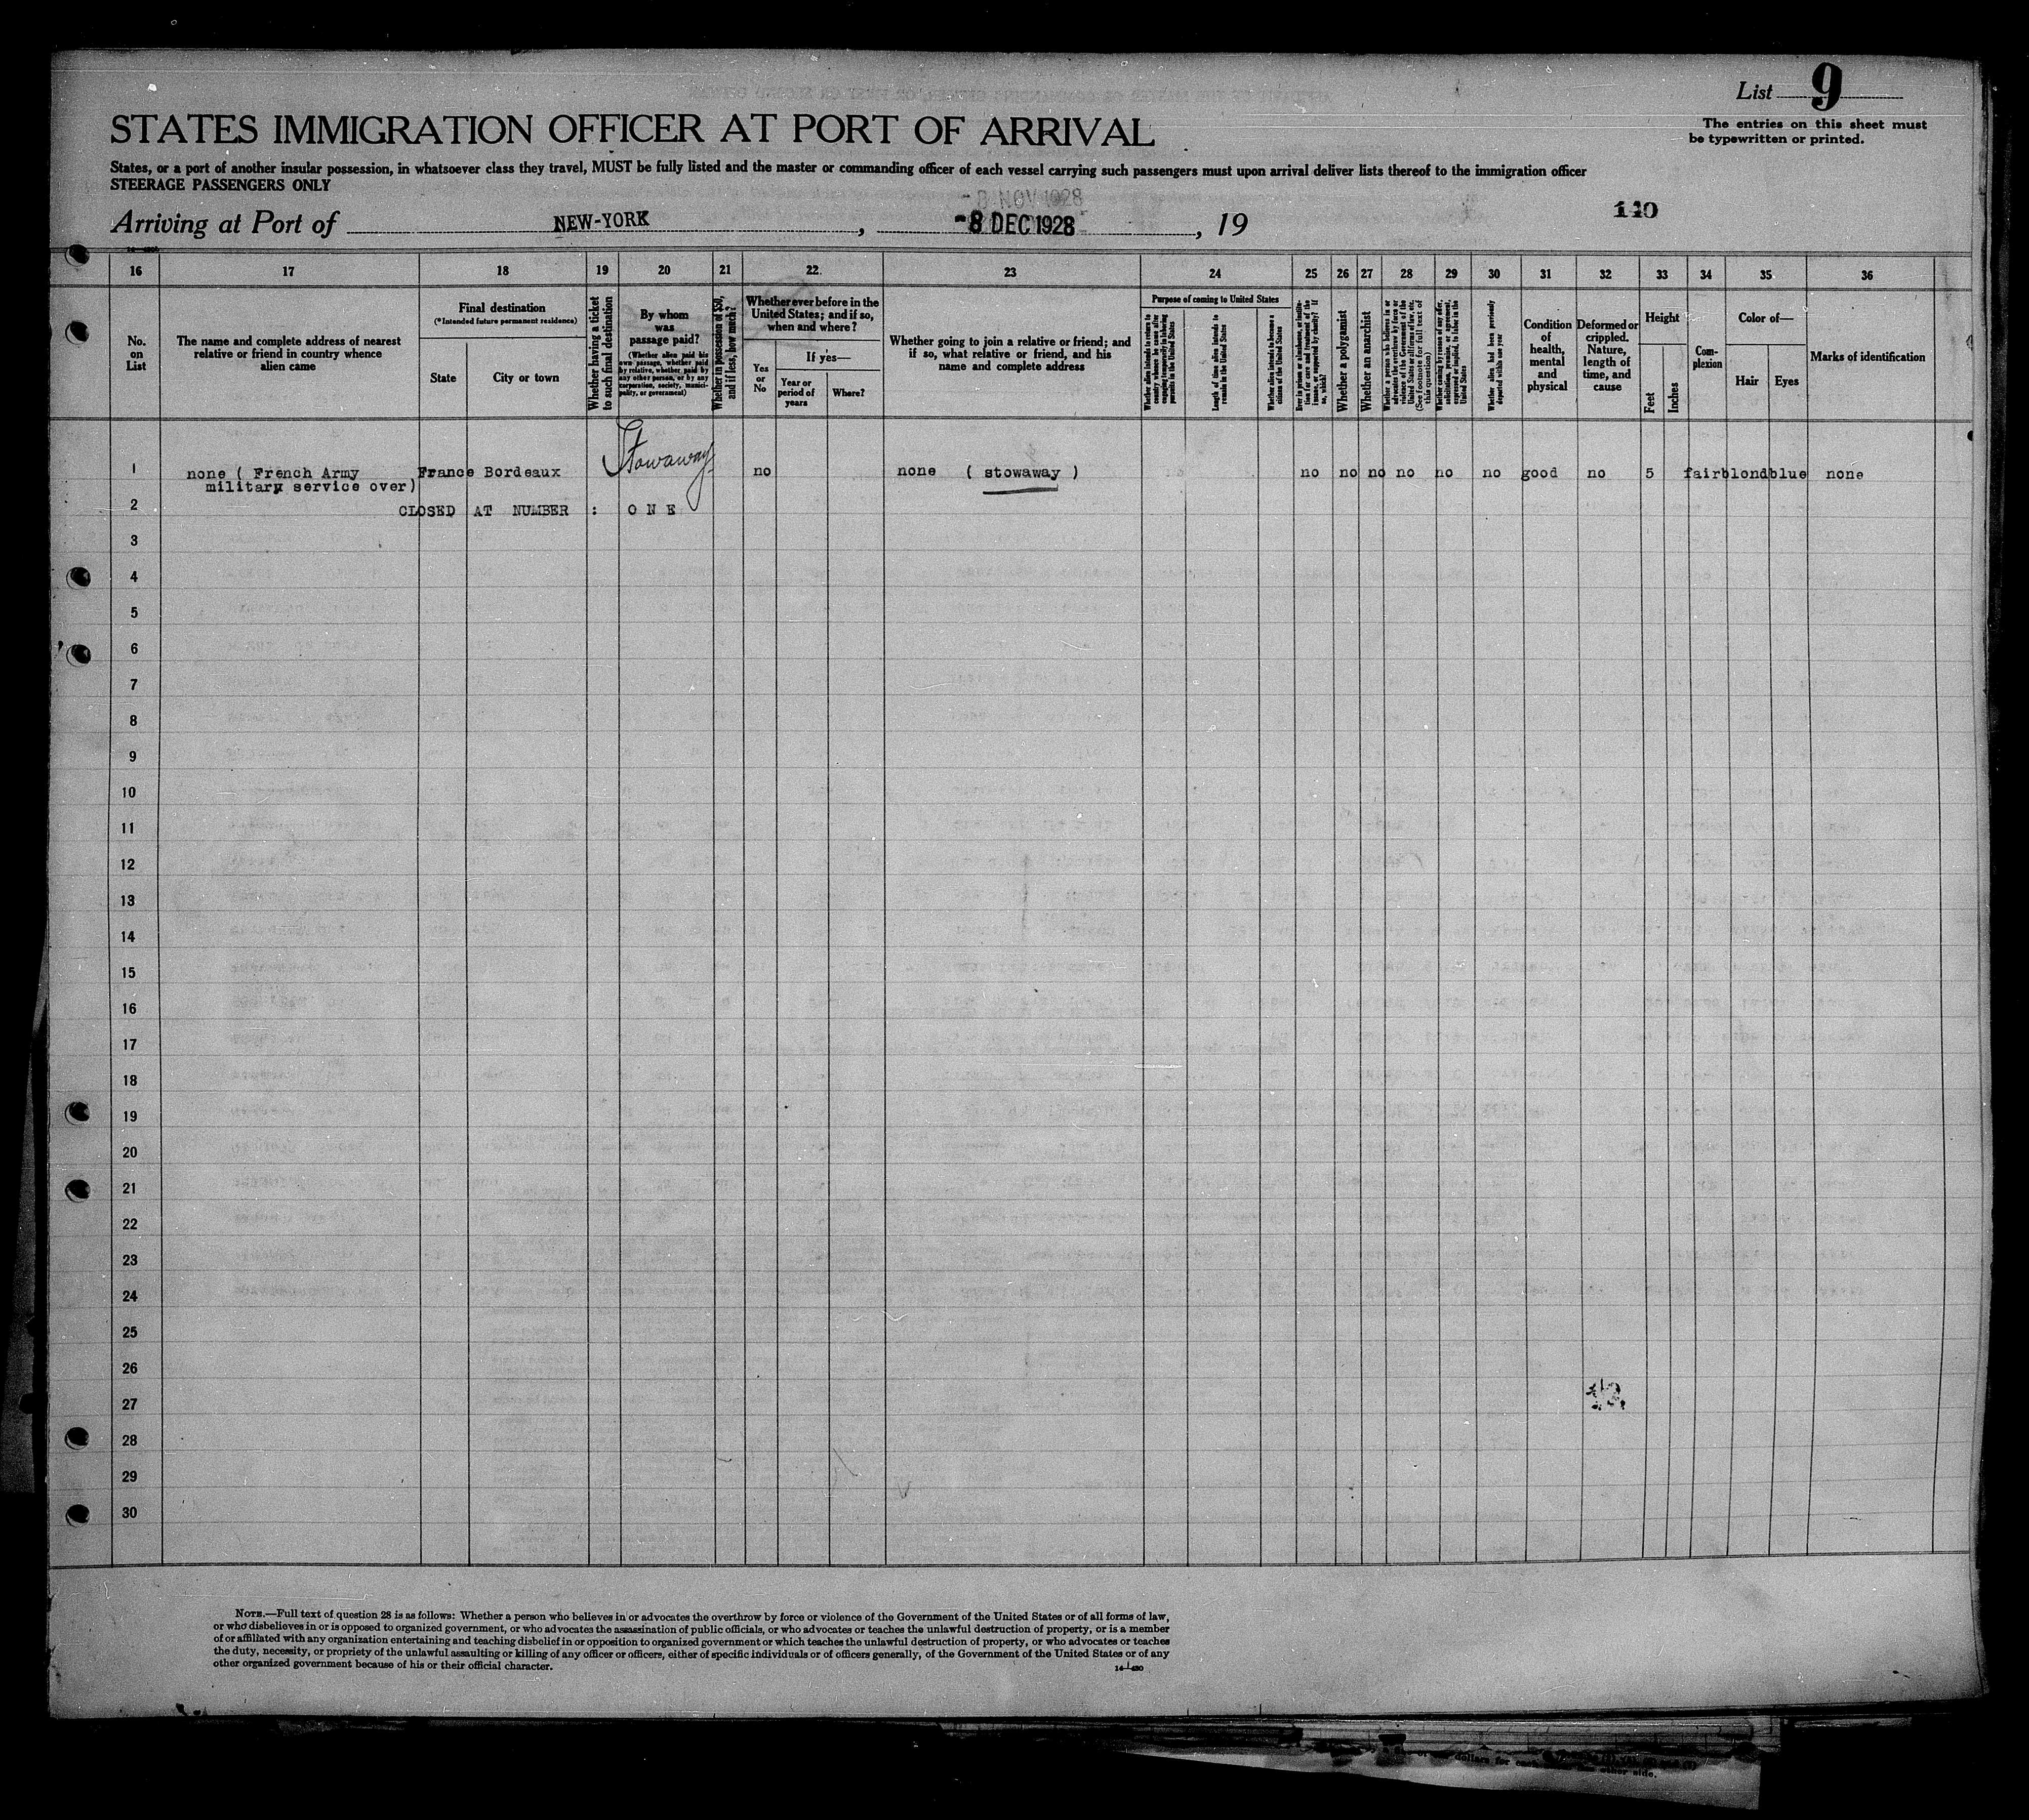 List 9
The entries on this sheet must
be typewritten or printed.
STATES IMMIGRATION OFFICER AT PORT OF ARRIVAL
States, or a port of another insular possession, in whatsoever class they travel, MUST be fully listed and the master or commanding officer of each vessel carrying such passengers must upon arrival deliver lists thereof to the immigration officer
STEERAGE PASSENGERS ONLY
-8 NOV 1928
Arriving at Port of NEW-YORK, -8 DEC 1928, 19
140
16 17 18 19 20 21 22 23 24 25 26 27 28 29 30 31 32 33 34 35 36
No.
on
List
The name and complete address of nearest
relative or friend in country whence
alien came
Final destination
(*Intended future permanent residence)
State
City or town
Whether having a ticket
to such final destination
By whom
was
passage paid?
(Whether alien paid his
own passage, whether paid
by relative, whether paid by
any other person, or by any
corporation, society, munici-
pality, or government)
Whether in possession of $50,
and if less, how much?
Whether ever before in the
United States; and if so,
when and where?
Yes
or
No
If yes—
Year or
period of
years
Where?
Whether going to join a relative or friend; and
if so, what relative or friend, and his
name and complete address
Purpose of coming to United States
Whether alien intends to return to
country whence he came after
engaging temporarily in laboring
pursuits in the United States
Length of time alien intends to
remain in the United States
Whether alien intends to become a
citizen of the United States
Ever in prison or almshouse, or institu-
tion for care and treatment of the
insane, or supported by charity? If
so, which?
Whether a polygamist
Whether an anarchist
Whether a person who believes in or
advocates the overthrow by force or
violence of the Government of the
United States or all forms of law, etc.
(See footnote for full text of
this question)
Whether coming by reason of any offer,
solicitation, promise, or agreement,
expressed or implied, to labor in the
United States
Whether alien had been previously
deported within one year
Condition
of
health,
mental
and
physical
Deformed or
crippled.
Nature,
length of
time, and
cause
Height
Feet
Inches
Com-
plexion
Color of—
Hair
Eyes
Marks of identification
Stowaway
1 none ( French Army France Bordeaux no none ( stowaway ) no no no no no no good no 5 fair blond blue none
military service over)
2 CLOSED AT NUMBER : O N E
3
4
5
6
7
8
9
10
11
12
13
14
15
16
17
18
19
20
21
22
23
24
25
26
27
28
29
30
NOTE.—Full text of question 28 is as follows: Whether a person who believes in or advocates the overthrow by force or violence of the Government of the United States or of all forms of law,
or who disbelieves in or is opposed to organized government, or who advocates the assassination of public officials, or who advocates or teaches the unlawful destruction of property, or is a member
of or affiliated with any organization entertaining and teaching disbelief in or opposition to organized government or which teaches the unlawful destruction of property, or who advocates or teaches
the duty, necessity, or propriety of the unlawful assaulting or killing of any officer or officers, either of specific individuals or of officers generally, of the Government of the United States or of any
other organized government because of his or their official character.
14—480